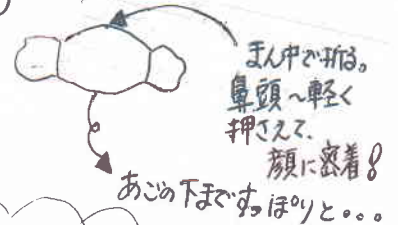 まん中で折る。
鼻頭～軽く
押さえて、
顔に密着!
あごの下まですっぽりと...